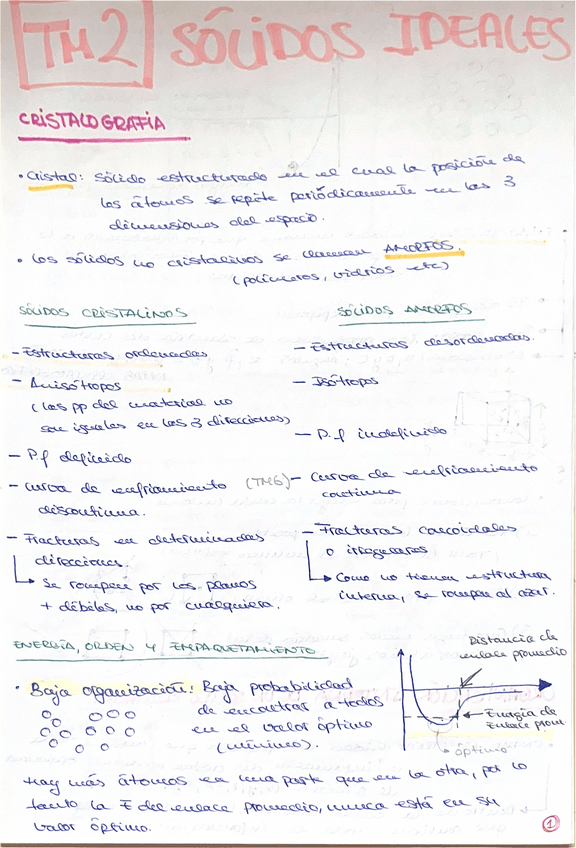 TM2 SÓLIDOS IDEALES
CRISTALOGRAFIA
• Cristal: Sólido estructurado en el cual la posición de
los átomos se repite periódicamente en las 3
dimensiones del espacio.
• Los sólidos no cristalinos se llaman AMORFOS.
(polímeros, vidrios etc)
SÓLIDOS CRISTALINOS
- Estructuras ordenadas
- Anisótropos
(las pp del material no
son iguales en las 3 direcciones)
- P.f definido
- Curva de enfriamiento (TM6)
discontinua.
- Fracturas en determinadas
direcciones.
Se rompen por los planos
+ débiles, no por cualquiera.
SÓLIDOS AMORFOS
- Estructuras desordenadas.
- Isótropos
- P.f indefinido
- Curva de enfriamiento
continua
- Fracturas concoidales
o irregulares
Como no tienen estructura
interna, se rompen al azar.
ENERGÍA, ORDEN Y EMPAQUETAMIENTO
• Baja organización: Baja probabilidad
de encontrar a todos
en el valor óptimo
(mínimo).
Distancia de
enlace promedio
Energía de
Enlace prom.
óptimo
Hay más átomos en una parte que en la otra, por lo
tanto la E del enlace promedio, nunca está en su
valor óptimo.
1